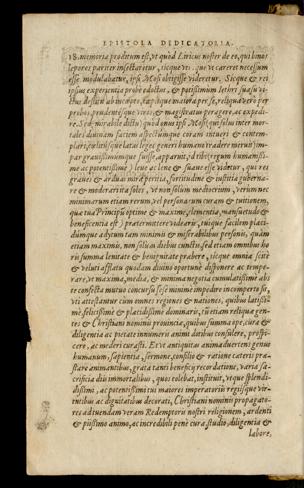 EPISTOLA DEDICATORIA.
memoria proditum est, vt quod Liricus noster de eo, qui binos
lepores pariter insectaretur, sicque vtroque vt careret necessum
esse modulabatur, ipsi Mosi obtigisse videretur. Sicque & rei
ipsius experientia probe edoctus, & potissimum Iethri suasu
destitit ab incoepto, maiora per se, reliqua vero per
probos, prudentesque viros & magistratum peragere, ac expedi-
re. Sed mirabile dictu quod onus ipsi Mosi (qui solus inter mor-
tales diuinam faciem aspectumque coram intueri & contem-
plari; cui vni has latas leges generi humano tradere meruit) im-
par grauissimumque fuisse, apparuit, id tibi (regum humanissi-
me ac potentissime) leue ac lene & suaue esse videtur, qui res
graues & arduas mira peritia, fortitudine & iustitia guberna-
re & moderari ita soles, vt non solum mediocrium, verum nec
minimarum etiam rerum vel personarum curam & tuitionem,
qua tua Principum optime & maxime, clementia, mansuetudo &
beneficentia est) praetermittere videaris, tuique facilem placi-
dumque adytum tam minimis & miserabilibus personis, quam
etiam maximis, non solum diebus cunctis, sed etiam omnibus ho
ris summa lenitate & benignitate praebere, sicque omnia scite
& veluti afflatu quodam diuino portuneque disponere ac tempe-
rare, vt maxima, media, & minima negotia cumulatissime abs
te confecta mutuo concursu sese minime impedire incomperto sit,
vti attestantur cum omnes regiones & nationes, quibus latissi-
me, felicissime & placidissime dominaris, tum etiam reliqua gen-
tes & Christiani nominis prouincia, quibus summa ope, cura &
diligentia ac pietate innumeris animi dotibus consulere, prospi-
cere, ac mederi curasti. Et vt antiquitas animaduertens genus
humanum, sapientia, sermone, consilio & ratione caeteris prae-
stare animantibus, grata tanti beneficij recordatione, varia sa-
crificia diis immortalibus, quos colebat, instituit, vtque splendi-
dissimi, ac potentissimi tui maiores imperatorijs regijsque vir-
tutibus ac dignitatibus decorati, Christiani nominis propagato-
res ad tuendam veram Redemptoris nostri religionem, ardenti
& pijssimo animo, ac incredibili pene cura, studio, diligentia &
labore,